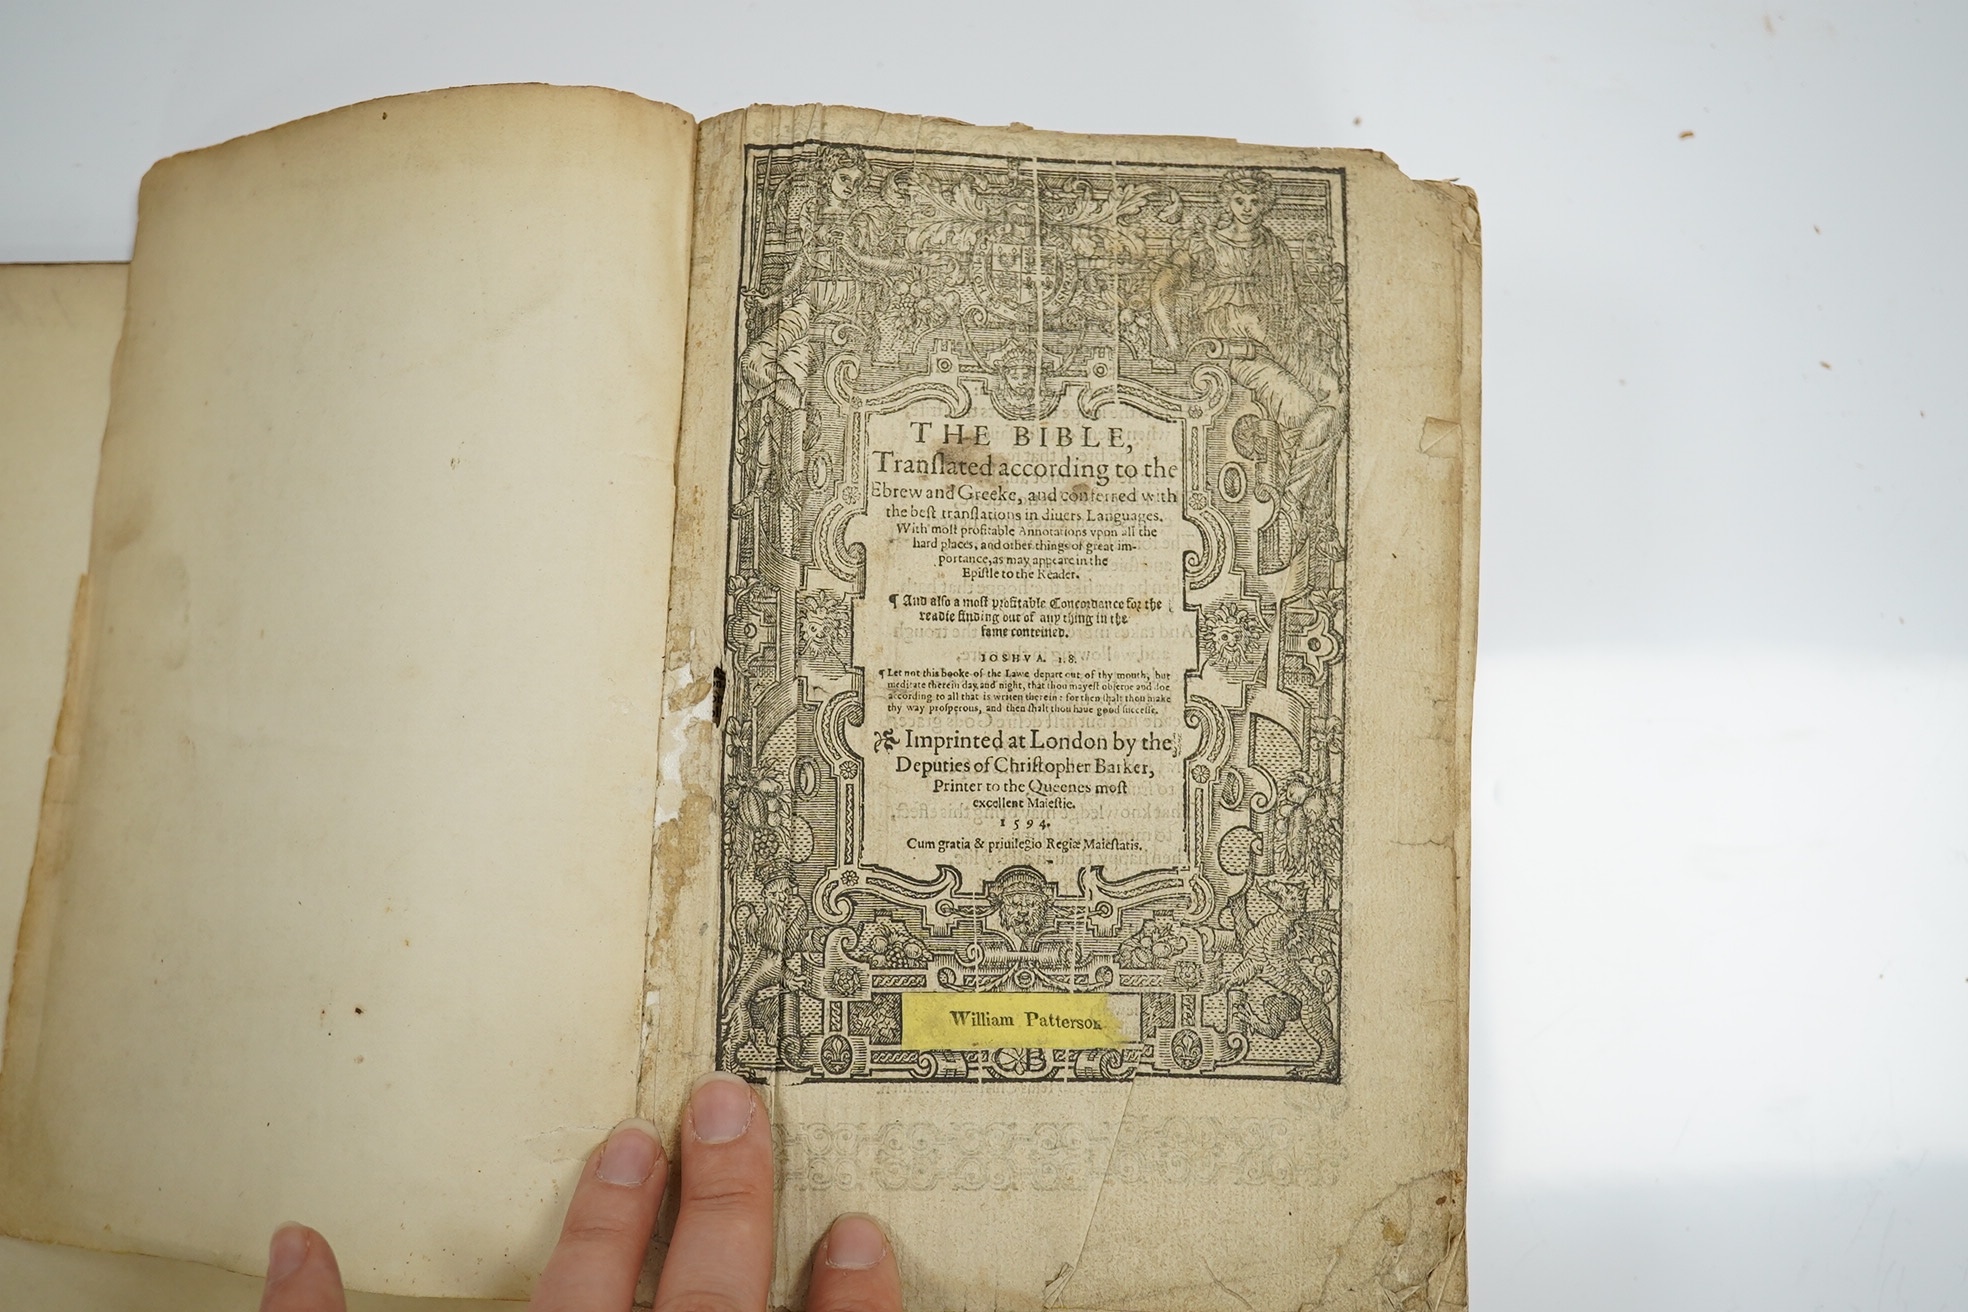 THE BIBLE,
Tranſlated according to the
Ebrew and Greeke, and conferred with
the beſt tranſlations in diuers Languages.
With moſt profitable Annotations vpon all the
hard places, and other things of great im-
portance, as may appeare in the
Epiſtle to the Reader.
¶ And alſo a moſt profitable Concordance for the
readie finding out of any thing in the
ſame conteined.
IOSHVA. 1.8.
¶ Let not this booke of the Lawe depart out of thy mouth, but
meditate therein day and night, that thou mayeſt obſerue and doe
according to all that is written therein: for then ſhalt thou make
thy way proſperous, and then ſhalt thou haue good ſucceſſe.
Imprinted at London by the
Deputies of Chriſtopher Barker,
Printer to the Queenes moſt
excellent Maieſtie.
1594.
Cum gratia & priuilegio Regiæ Maieſtatis.
William Patterson